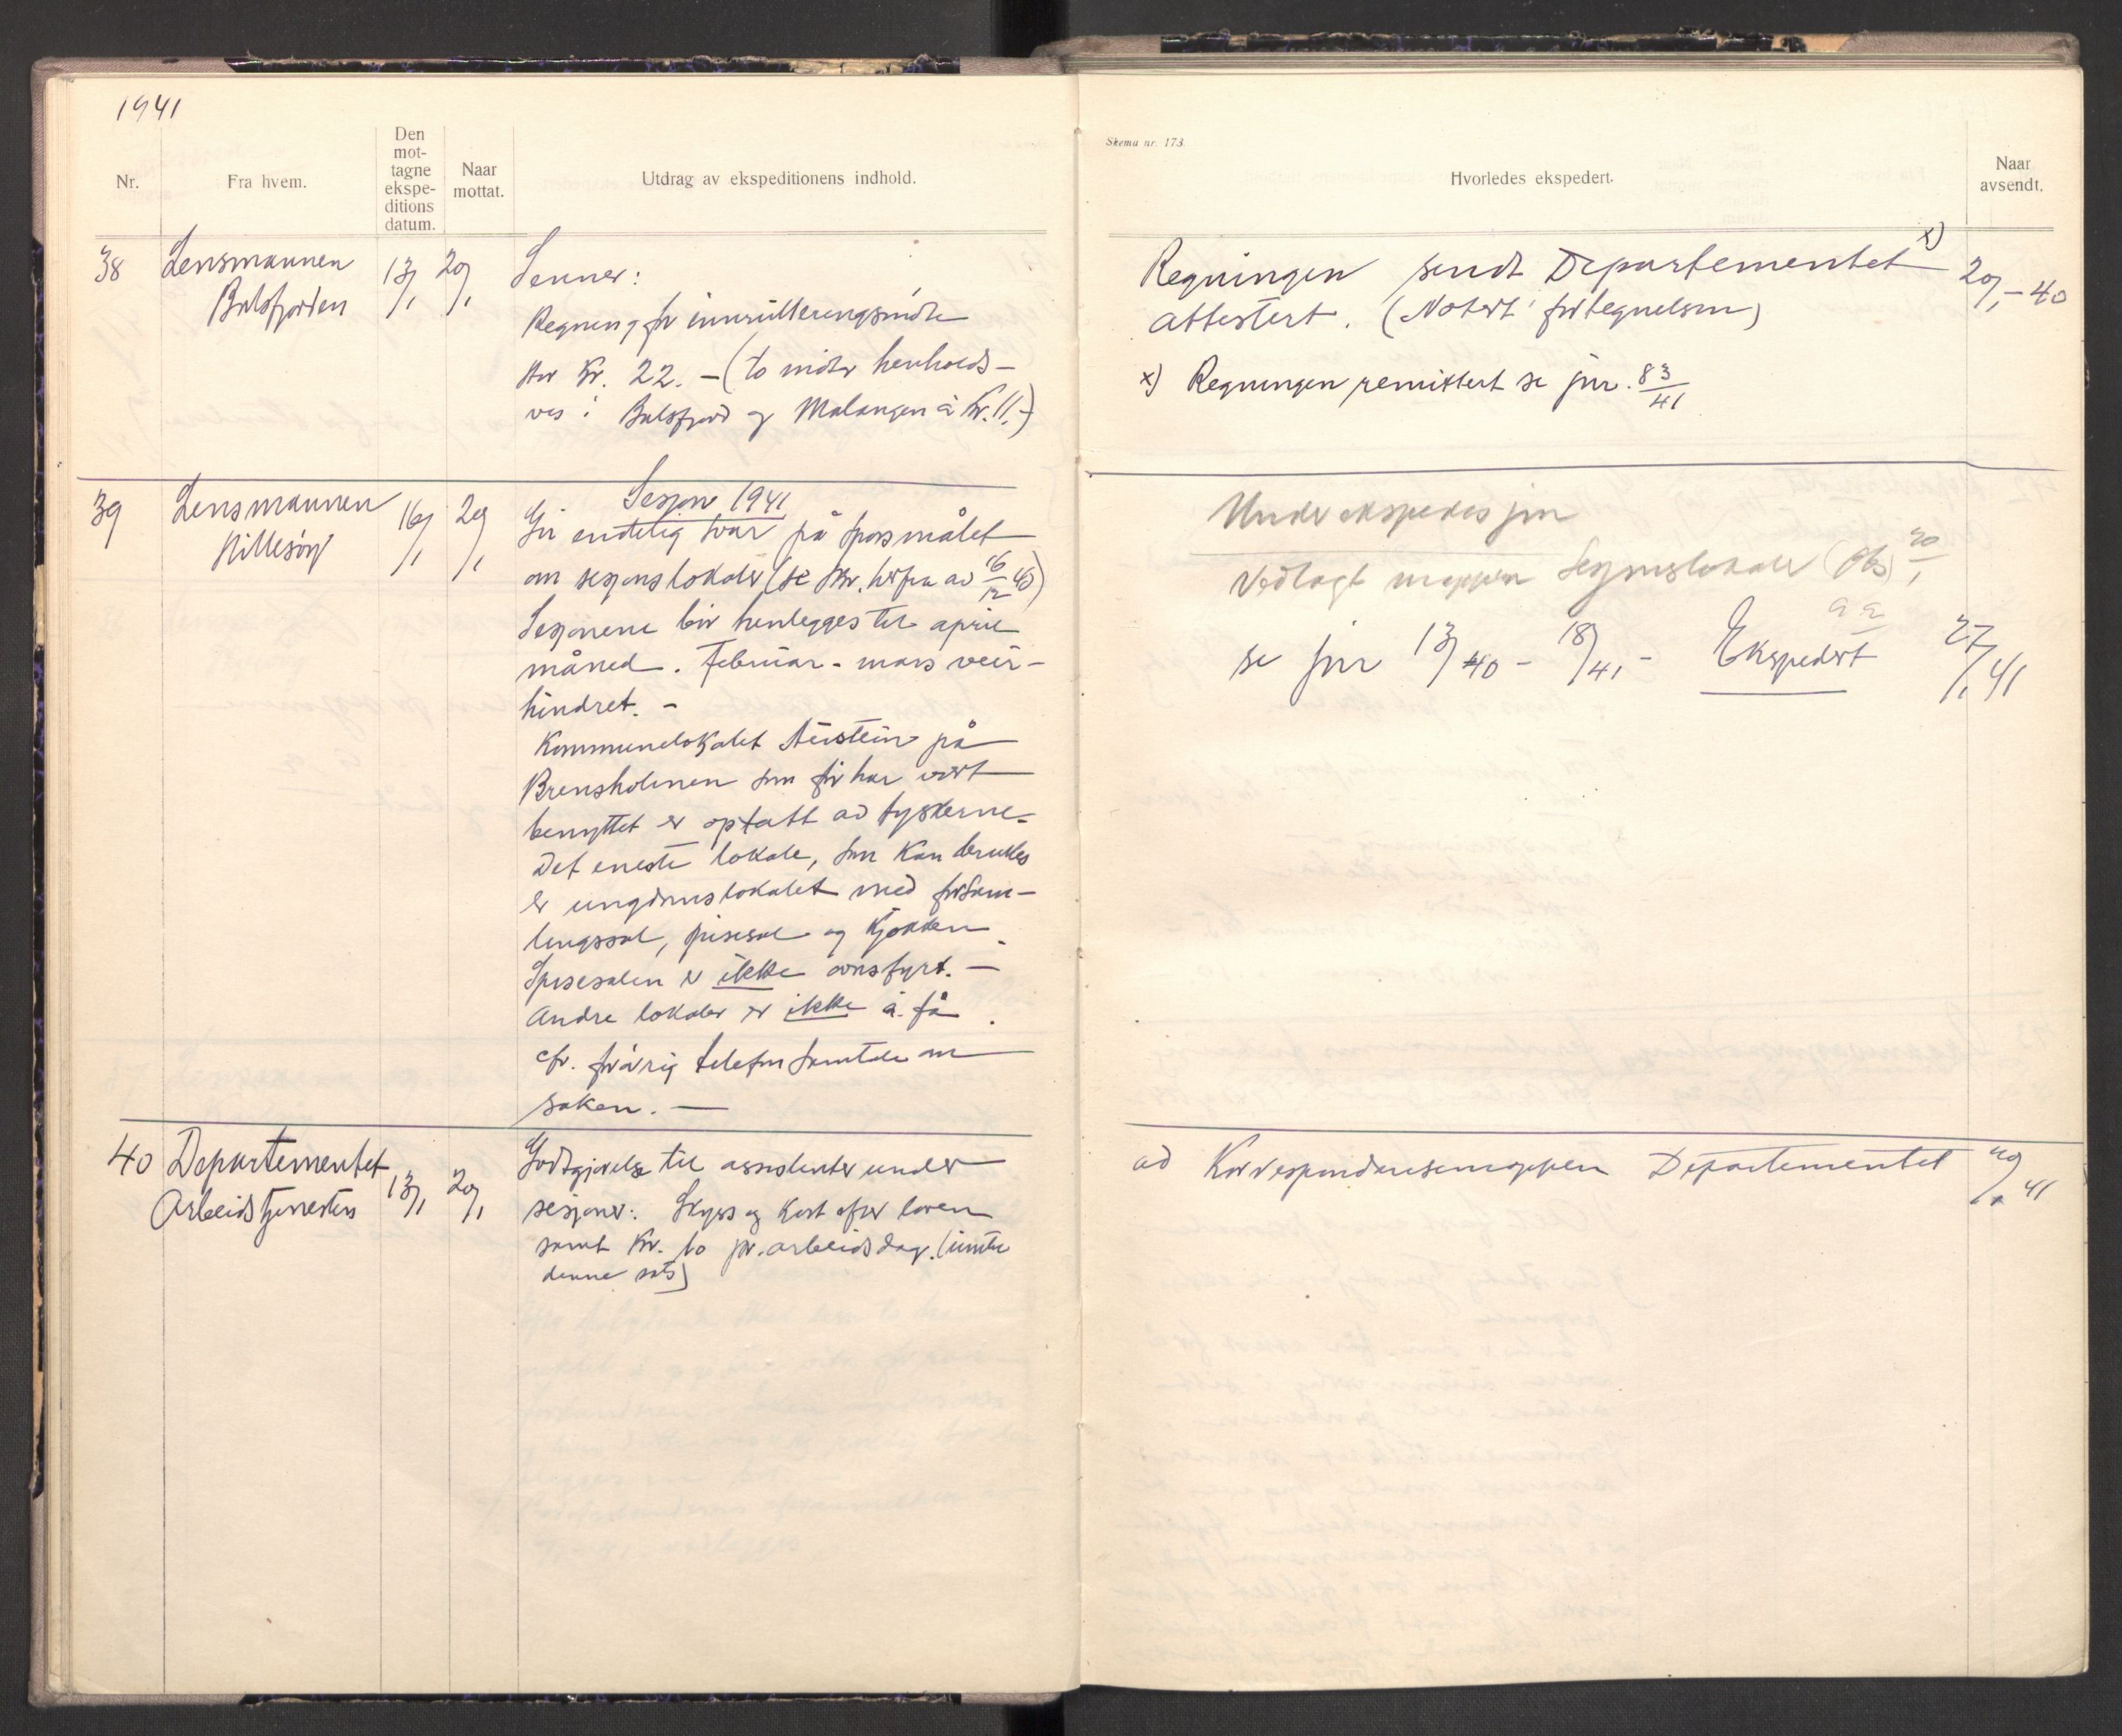 1941
Nr.
Fra hvem.
Den
mot-
tagne
ekspe-
ditions
datum.
Naar
mottat.
Utdrag av ekspeditionens indhold.
38
Lensmannen
Balsfjorden
13/1
20/1
Senner:
Regning for innrulleringsmöte
stor Kr. 22.- (to möter henholds-
vis i Balsfjord og Malangen à kr. 11.-)
39
Lensmannen
Hillesöy
16/1
20/1
Sesjon 1941
Gir endelig svar på sporsmålet
om sesjonslokaler (se skr. herfra av 16/12 40)
Sesjonene bör henlegges til april
måned. Februar - mars veir-
hindret. -
Kommunelokalet på
Brensholmen som för har vært
benyttet er optatt av tyskerne.
Det eneste lokale, som kan brukes
er ungdomslokalet med forsam-
lingssal, spisesal og kjökken.
Spisesalen er ikke ovnsfyrt. -
Andre lokaler er ikke å få.
cfr. forövrig telefon samtale om
saken. -
40
Departementet
Arbeidstjenesten
13/1
20/1
Godtgjörelse til assistenter under
sesjoner: Skyss og kost efter loven
samt Kr. 10 pr. arbeidsdag. (inntil
denne sats)
Skema nr. 173.
Hvorledes ekspedert.
Naar
avsendt.
Regningen sendt Departementet x)
20/1 - 40
attestert. (Notert fortegnelsen)
x) Regningen remittert se jnr. 83/41
Under ekspedisjon
Vedlagt mappen Sesjonslokaler (Obs) 20/1
se jnr 13/40 - 18/41 - Ekspedert
27/1 41
ad Korrespondansemappen Departementet
20/1 41